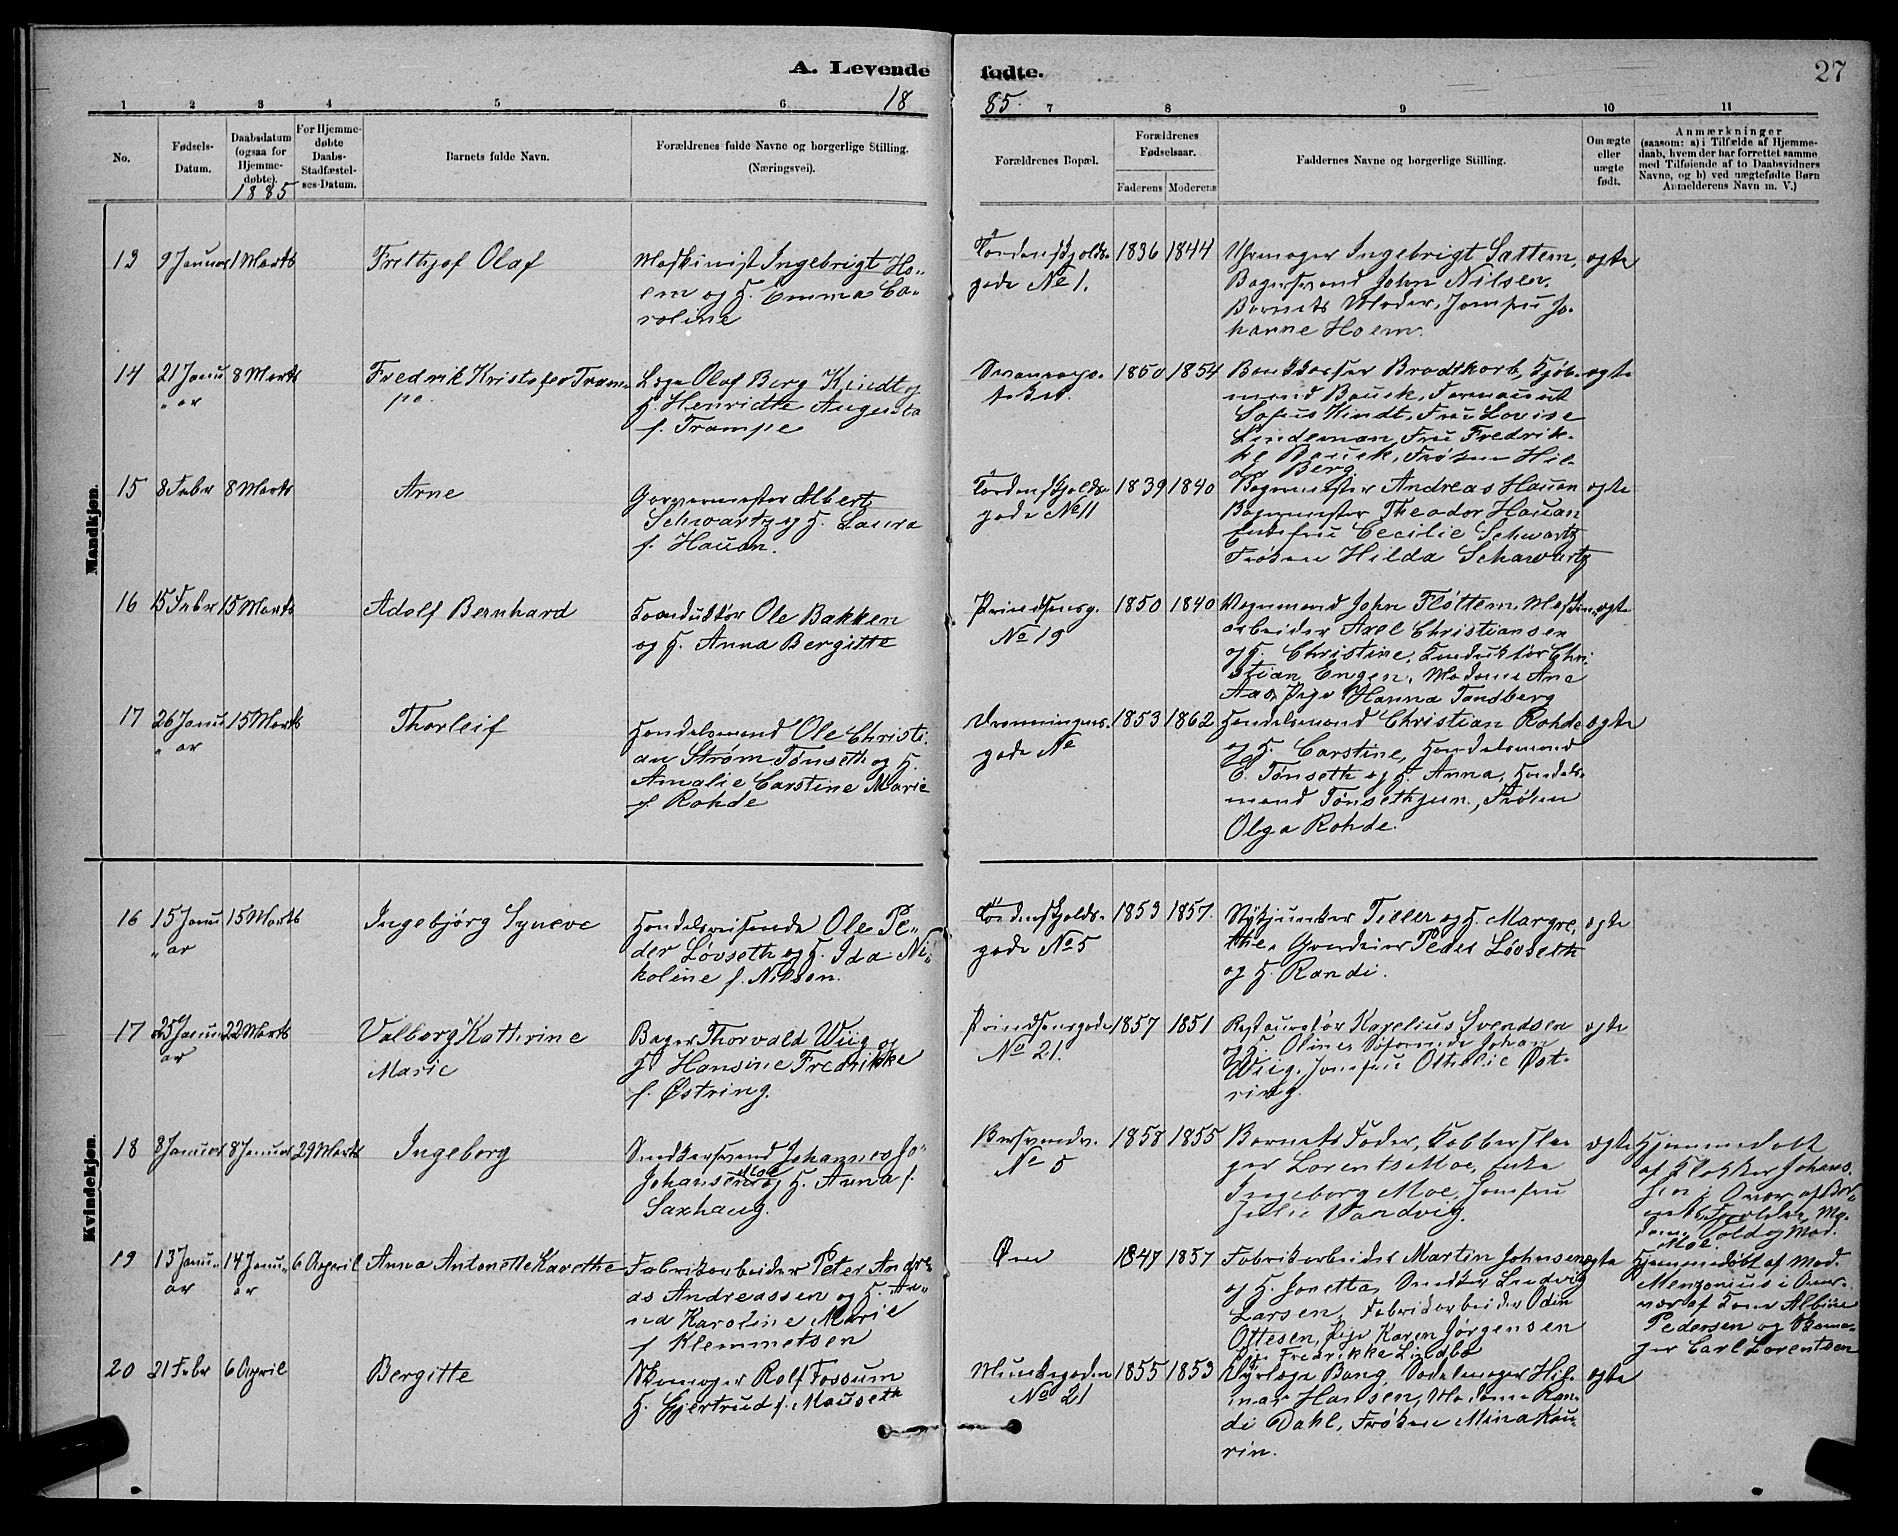 A. Levende
fødte.
27
18
85.
1 2 3 4 5 6
7 8 9 10 11
No.
Fødsels-
Datum.
Daabsdatum
(ogsaa for
Hjemme-
døbte).
1885
For Hjemme-
døbte
Daabs-
Stadfæstel-
ses-Datum.
Barnets fulde Navn.
Forældrenes fulde Navne og borgerlige Stilling.
(Næringsvei).
Forældrenes Bopæl.
Forældrenes
Fødselsaar.
Faderens Moderens
Faddernes Navne og borgerlige Stilling.
Om ægte
eller
uægte
født.
Anmærkninger
(saasom: a) i Tilfælde af Hjemme-
daab, hvem der har forrettet samme
med Tilføiende af to Daabsvidners
Navne, og b) ved uægtefødte Børn
Anmelderens Navn m. V.)
Mandkjøn.
13
9 Januar
1 Marts
Frithjof Olaf
Maskinist Ingebrigt Ho-
em og H. Emma Ca-
roline
Tordenskjolds-
gade No 1.
1836
1844
Uhrmager Ingebrigt Sattem,
Bagersvend John Nilsen,
Barnets Moder, Jomfru Jo-
hanne Hoem.
ægte
14
21 Janu
" ar
8 Marts
Fredrik Kristofer Tram-
pe.
Læge Olaf Berg Kindt og
H. Henridtte Augusta
f. Trampe
1850
1854
Bradtkorb, Kjøb-
mand Bauck,
Sofus Kindt, Fru Lovise
Lindeman, Fru Fredrik-
ke Bauck, Frøken Hil-
da Berg
ægte
15
8 Febr
8 Marts
Arne
Garvermester Albert
Schwartz og H. Laura
f. Hauan.
Tordenskjolds-
gade No 11
1839
1840
Bagermester Andreas Hauan
Bagermester Theodor Hauan
Enkefru Cecilie Schwartz
Frøken Hilda Schawartz
ægte
16
15 Febr
15 Marts
Adolf Bernhard
Konduktør Ole Bakken
og H. Anna Bergitte
Prindsensg.
No 19
1850
1840
Vognmand John Fløttem, Maskin-
arbeider Axel Christiansen
og H. Christine, Konduktør Chri-
stian Engen, Madame Ane
Aas, Pige Hanna Tandberg
ægte
17
26 Janu
" ar
15 Marts
Thorleif
Handelsmand Ole Christi-
an Strøm Tønseth og H.
Amalie Carstine Marie
f. Rohde
Dronningens-
gade No
1853
1862
Handelsmand Christian Rohde
og H. Carstine, Handelsmand
O. Tønseth og H. Anna, Handels-
mand Tønseth jun., Frøken
Olga Rohde.
ægte
Kvindekjøn.
16
15 Janu
" ar
15 Marts
Ingebjørg Syneve
Handelsreisende Ole Pe-
der Løvseth og H. Ida Ni-
koline f. Nilsen.
Tordenskjolds-
gade No 5
1853
1857.
Teller og H. Margre-
the, Peder Løvseth
og H. Randi.
ægte
17
25 Janu
ar
22 Marts
Valborg Kathrine
Marie
Bager Thorvald Wiig og
H. Hansine Fredrikke
f. Østring.
Prindsensgade
No 21.
1857
1851
Restauratør Karelius Svendsen
og H. Oline, Søfarende Johan
Wiig, Jomfru Othelie Øst-
ring.
ægte
18
8 Januar
8 Januar
29 Marts
Ingeborg
Snedkersvend Johannes Jo-
Johansen Moe og H. Anna f.
Saxhaug.
No 5
1858
1855
Barnets Fader, Kobbersla-
ger Lorents Moe, Enke
Ingeborg Moe, Jomfru
Julie Vandvig.
ægte
Hjemmedøbt
af Klokker Johan-
sen
19
13 Janu-
ar
14 Janu-
ar
6 April
Anna Antonette Karethe
Fabrikarbeider Peter Andre-
as Andreassen og H. An-
na Karoline Marie
f. Klemmetsen
Øen
1847
1857
Fabrikarbeider Martin Johnsen
og H. Jonetta, Snedker Ludvig
Larsen, Fabrikarbeider Odin
Ottesen, Pige Karen Jørgensen
Pige Fredrikke
ægte
Hjemmedøbt af Mad.
Menzonius i Over-
vær af Kone Albine
Pedersen og Skoma-
ger Carl Lorentsen
20
21 Febr
6 April
Bergitte
Skomager Rolf Fossum
H. Gjertrud f. Mauseth
Munkegaden
No 21
1855
1853
Bang, Sadelmager Hil-
mar Hansen, Madame Ran-
di Dahl, Frøken Mina Kau-
rin.
ægte